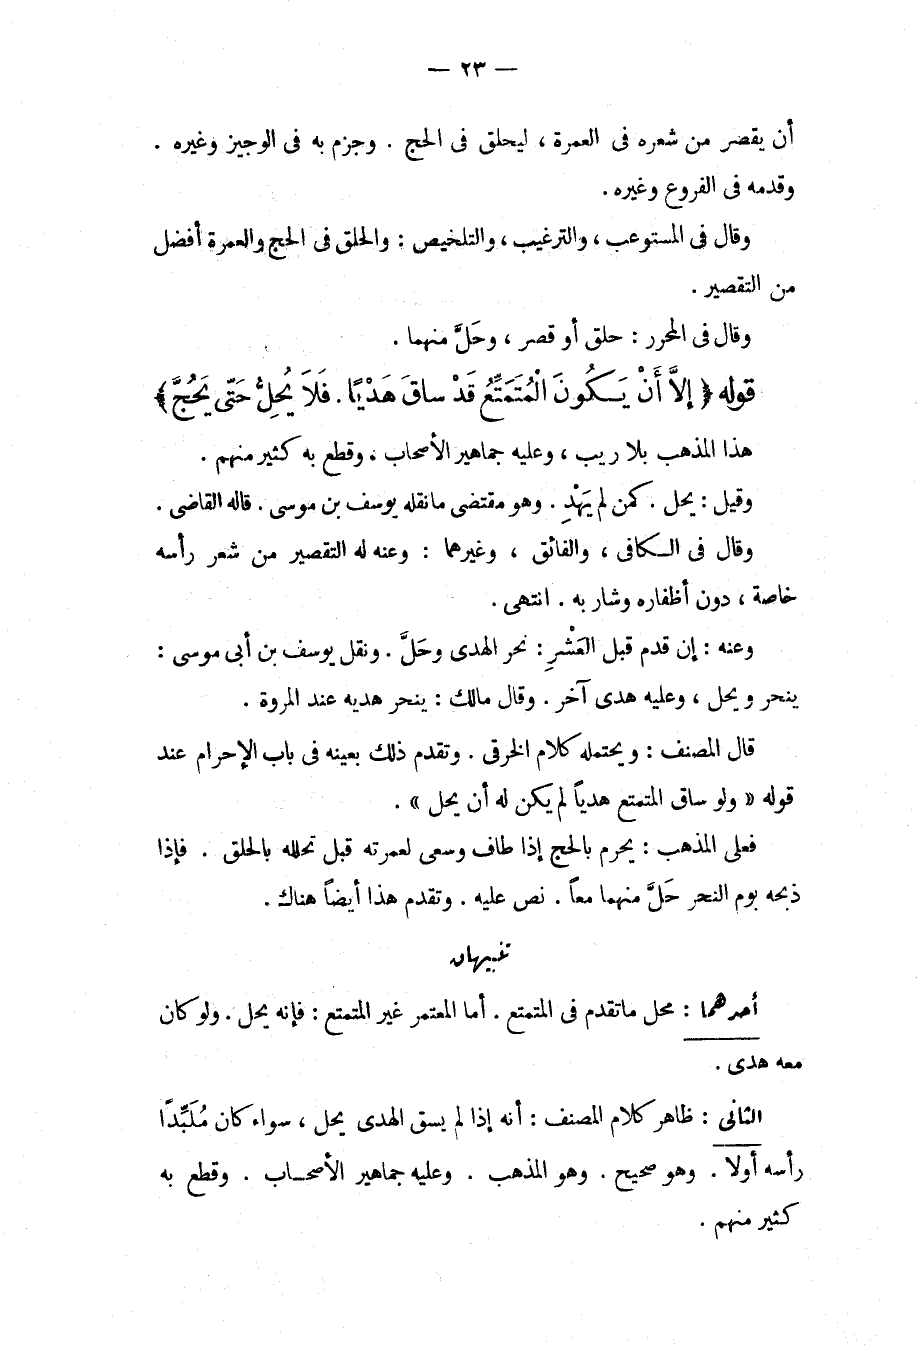 — ٢٣ —
أن يقصر من شعره فى العمرة ، ليحلق فى الحج . وجزم به فى الوجيز وغيره .
وقدمه فى الفروع وغيره .
وقال فى المستوعب ، والترغيب ، والتلخيص : والحلق فى الحج والعمرة أفضل
من التقصير .
وقال فى المحرر : حلق أو قصر ، وحَلَّ منهما .
قوله ﴿ إلاَّ أَنْ يَكُونَ الْمُتَمَتِّعُ قَدْ ساقَ هَدْيًا . فَلاَ يُحِلُّ حَتّى يَحُجَّ ﴾
هذا المذهب بلا ريب ، وعليه جماهير الأصحاب ، وقطع به كثير منهم .
وقيل : يحل . كمن لم يَهْدِ . وهو مقتضى مانقله يوسف بن موسى . قاله القاضى .
وقال فى الكافى ، والفائق ، وغيرهما : وعنه له التقصير من شعر رأسه
خاصة ، دون أظفاره وشاربه . انتهى .
وعنه : إن قدم قبل العَشْرِ : نحر الهدى وحَلَّ . ونقل يوسف بن أبى موسى :
ينحر ويحل ، وعليه هدى آخر . وقال مالك : ينحر هديه عند المروة .
قال المصنف : ويحتمله كلام الخرقى . وتقدم ذلك بعينه فى باب الإحرام عند
قوله « ولو ساق المتمتع هدياً لم يكن له أن يحل » .
فعلى المذهب : يحرم بالحج إذا طاف وسعى لعمرته قبل تحلله بالحلق . فإذا
ذبحه يوم النحر حَلَّ منهما معاً . نص عليه . وتقدم هذا أيضاً هناك .
تنبيهان
أحدهما : محل ماتقدم فى المتمتع . أما المعتمر غير المتمتع : فإنه يحل . ولو كان
معه هدى .
الثانى : ظاهر كلام المصنف : أنه إذا لم يسق الهدى يحل ، سواء كان مُلَبِّدًا
رأسه أولا . وهو صحيح . وهو المذهب . وعليه جماهير الأصحاب . وقطع به
كثير منهم .